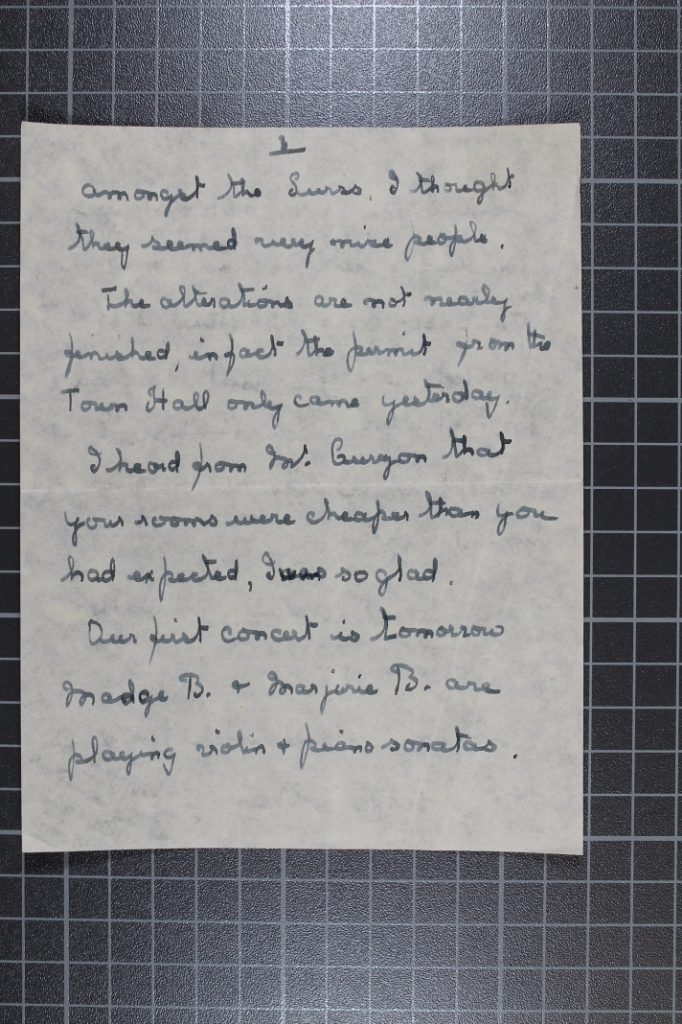 amongst the Swiss. I thought
they seemed very nice people.
The alterations are not nearly
finished, in fact the permit from the
Town Hall only came yesterday.
I heard from Mr. that
your rooms were cheaper than you
had expected, I was so glad.
Our first concert is tomorrow
Madge B. & Marjorie B. are
playing violin & piano sonatas.